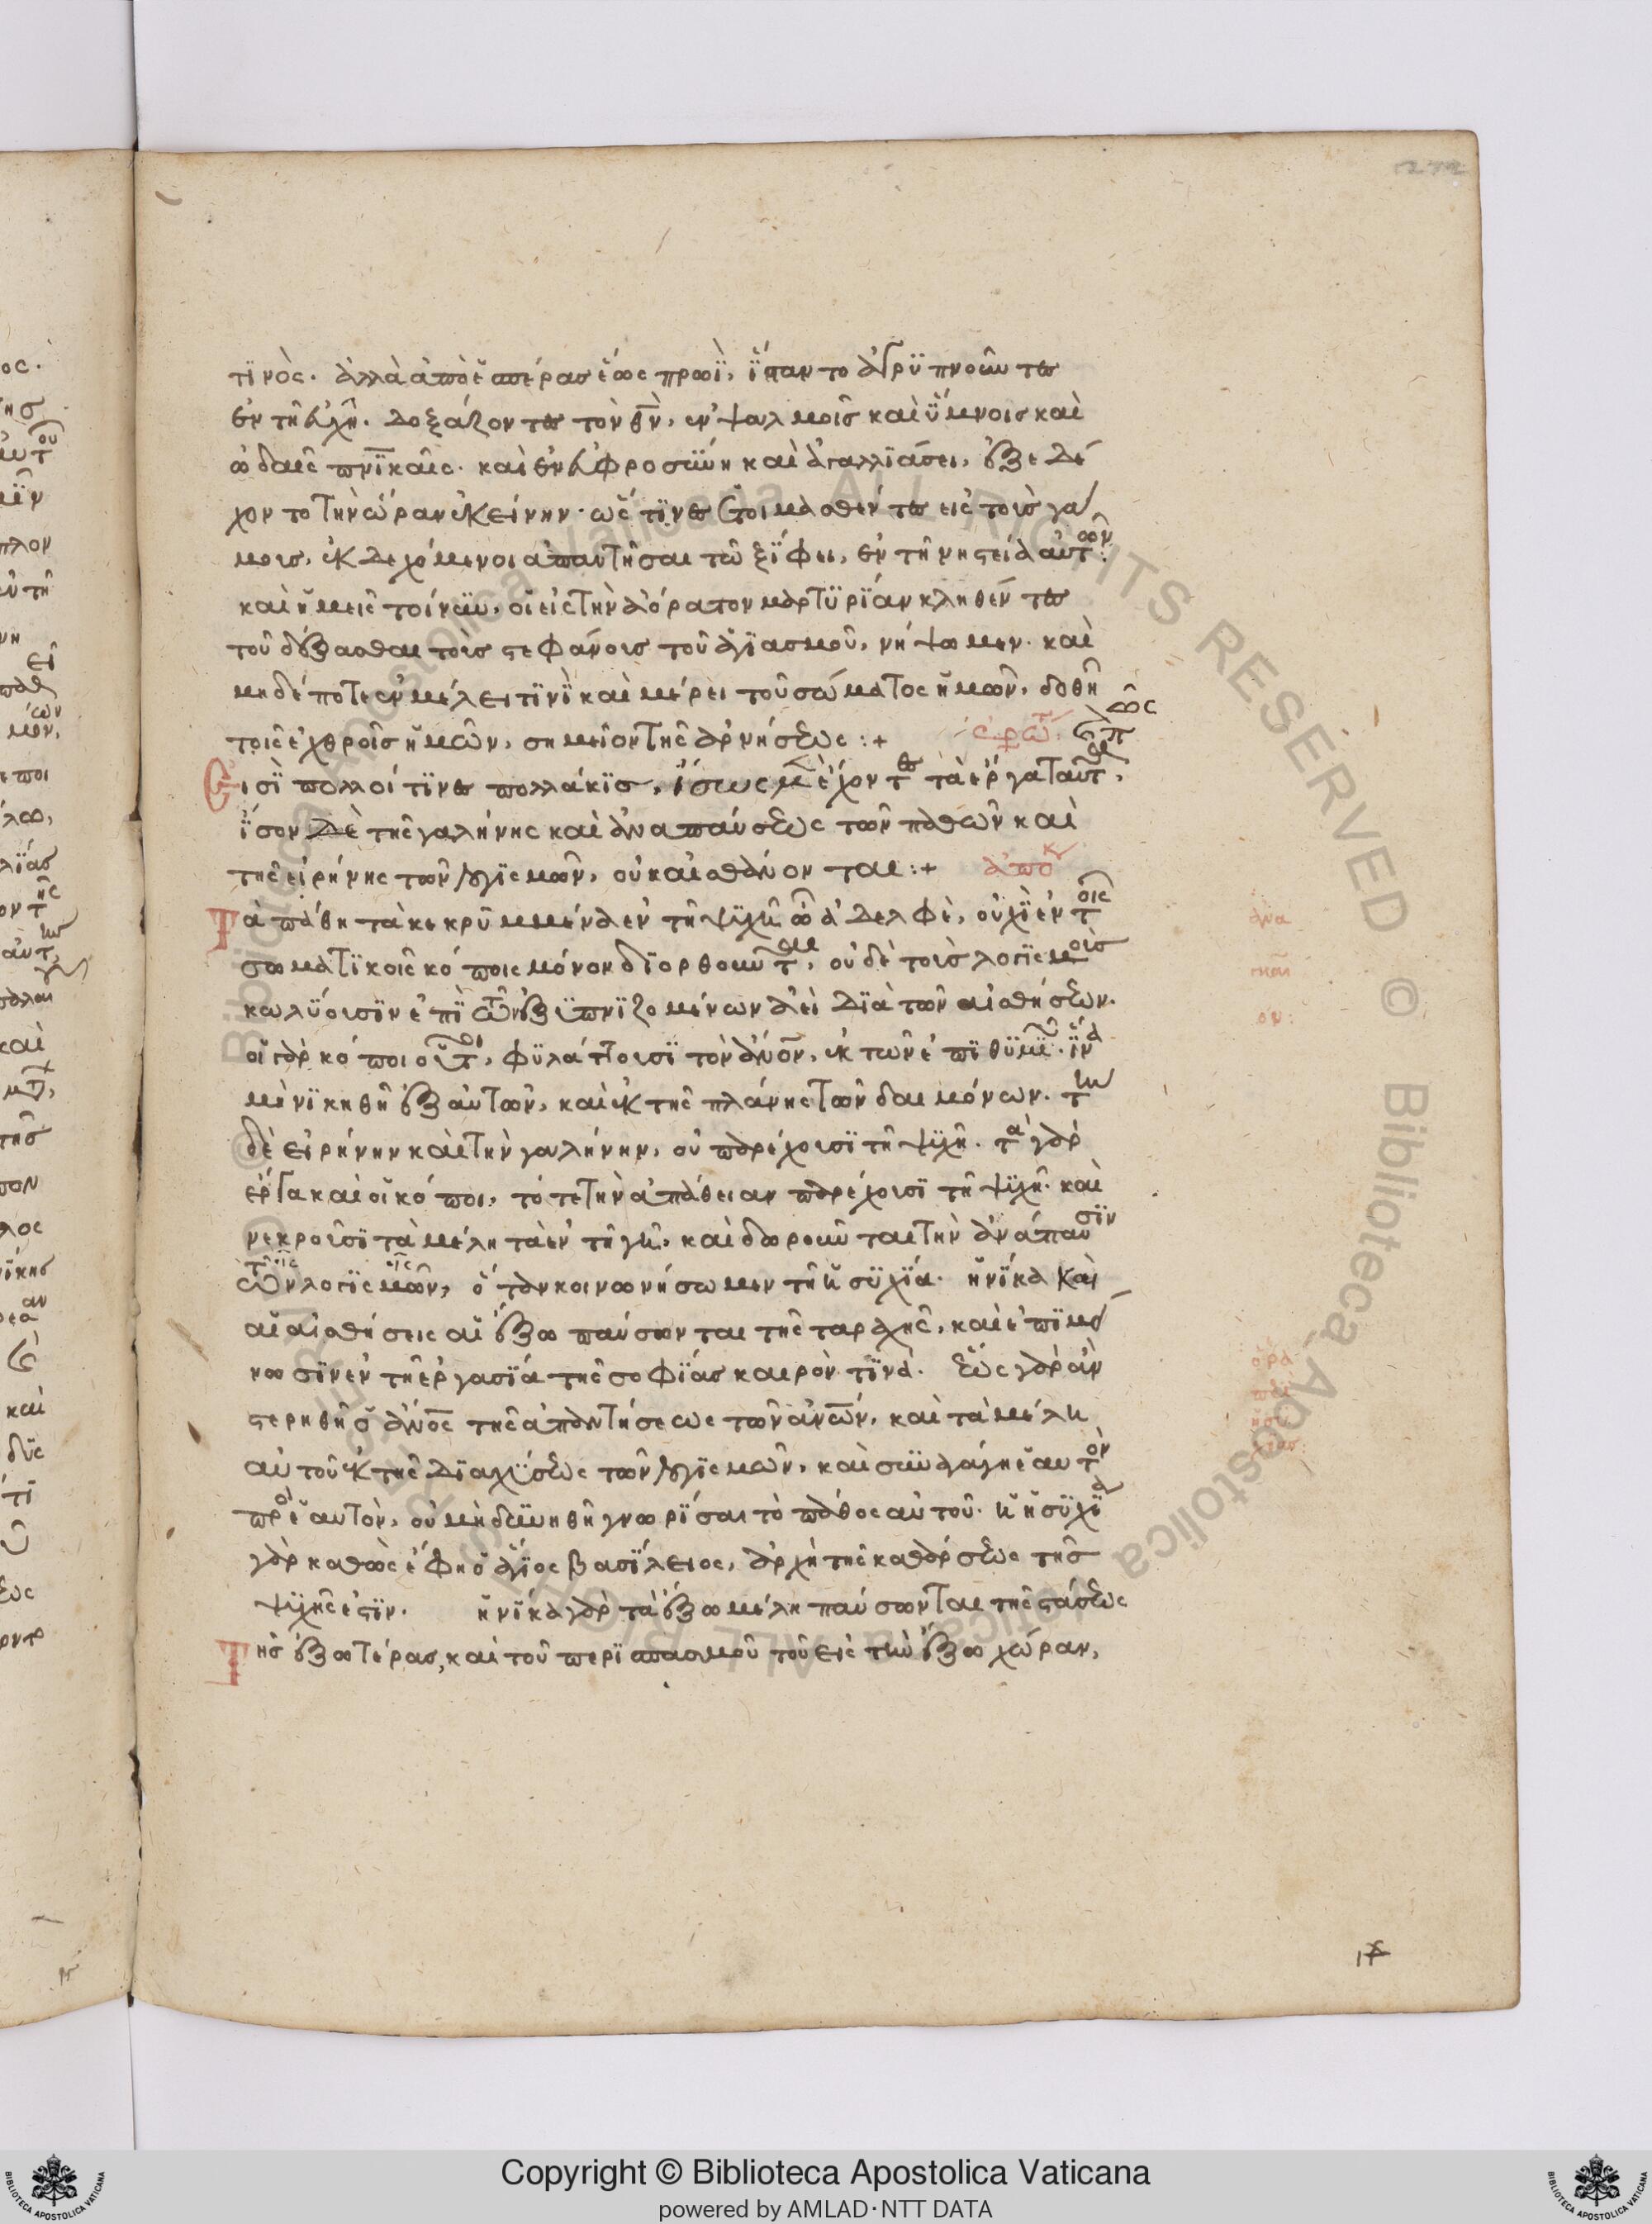 τϊνὸς· ἀλλὰ ἀπὸ ἑσπέρας ἕως πρωῒ, ἵσταντο ἀγρϋπνοῦντες
ἐν τῆ εὐχῆ. δοξάζοντες τὸν θν, ἐν ψαλμοῖς καὶ ὕμνοις καὶ
ὠδαῖς πνϊκαῖς. καὶ ἐν εὐφροσύνη καὶ ἀγαλλϊάσει, ἐξεδέ
χοντο τὴν ὥραν ἐκείνην· ὥς τϊνες ἑτοιμασθέντες εἰς τοὺς γά
μοις, ἐκδεχόμενοι ἀπαντῆσαι τῶ ξίφει, ἐν τῆ νηστεία αὐτῶν:
καὶ ἡμεῖς τοίνυν, οἱ εἰς τὴν ἀόρατον μαρτϋρίαν κληθέντες
τοῦ δέξασθαι τοὺς στεφάνοις τοῦ ἁγϊασμοῦ, νήψωμεν. καὶ
μηδέποτε ἐν μέλει τϊνῒ καὶ μέρει τοῦ σώματος ἡμῶν, δοθῆ
τοῖς ἐχθροῖς ἡμῶν, σημεῖον τῆς ἀρνήσεως :+ ἐρωτ
Εἰσῒ πολλοί τϊνες πολλάκϊς, ἴσως μὲ ἔχοντες τὰ ἔργα ταῦτ,
ἴσον δὲ τῆς γαλήνης καὶ ἀναπαύσεως τῶν παθῶν καὶ
τῆς εἰρήνης τῶν λογϊσμῶν, οὐκ αἰσθάνονται :+ ἀποκ
Τὰ πάθη τὰ κεκρϋμμένα ἐν τῆ ψϋχῆ ὦ ἀδελφὲ, οὐχῒ ἐν τοῖς
σωματϊκοῖς κόποις μόνον δϊορθοῦνται, οὐδὲ τοὺς λογϊσμοὺς
κωλϋουσϊν ἐπῒ τῶν ἐξϋπνϊζομένων ἀεὶ δϊὰ τῶν αἰσθήσεων.
οἱ γὰρ κόποι οὗτοι, φϋλάττουσϊ τὸν ἀνον, ἐκ τῶν ἐπϊθϋμϊ. ἵνα
μὴ νϊκηθῆ ἐξ αὐτῶν, καὶ ἐκ τῆς πλάνης τῶν δαιμόνων. τὴν
δὲ εἰρήνην καὶ τὴν γαλήνην, οὐ παρέχουσϊ τῆ ψϋχῆ. τὰ γὰρ
ἔργα καὶ οἱ κόποι, τότε τὴν ἀπάθειαν παρέχουσϊ τῆ ψϋχῆ. καὶ
νεκροῦσϊ τὰ μέλη τὰ ἐν τῆ γῆ, καὶ δωροῦνται τὴν ἀνάπαυσϊν
τῶν λογϊσμῶν, ὅταν κοινωνήσωμεν τῆ ἡσϋχϊα. ἡνϊκα καὶ
αἱ αἰσθήσεις αἱ ἔξω παύσωνται τῆς ταραχῆς, καὶ ἐπϊμεί
νωσϊν ἐν τῆ ἐργασϊα τῆς σοφϊας καιρὸν τϊνα. ἕως γὰρ ἂν
στερηθῆ ὁ ἀνος τῆς ἀπαντήσεως τῶν ἀνων, καὶ τὰ μέλη
αὐτοῦ ἐκ τῆς δϊαχϋσεως τῶν λογϊσμῶν, καὶ συναγάγη ἑαυτὸν
πρὸς ἑαυτὸν, οὐ μὴ δυνηθῆ γνωρϊσαι τὸ πάθος αὐτοῦ. ἡ ἡσϋχϊα
γὰρ καθὼς ἔφη ὁ ἅγϊος βασϊλειος, ἀρχὴ τῆς καθάρσεως τῆς
ψϋχῆς ἐστϊν. ἡνϊκα γὰρ τὰ ἔξω μέλη παύσωνται τῆς στάσεως
Τῆς ἐξωτέρας, καὶ τοῦ περϊσπασμοῦ τοῦ εἰς τὴν ἔξω χώραν,
Copyright © Biblioteca Apostolica Vaticana
powered by AMLAD·NTT DATA